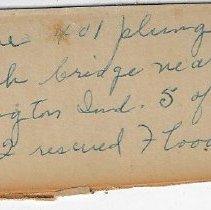 401 plung
bridge nea
gton Ind. 5 of
2 rescued Floo